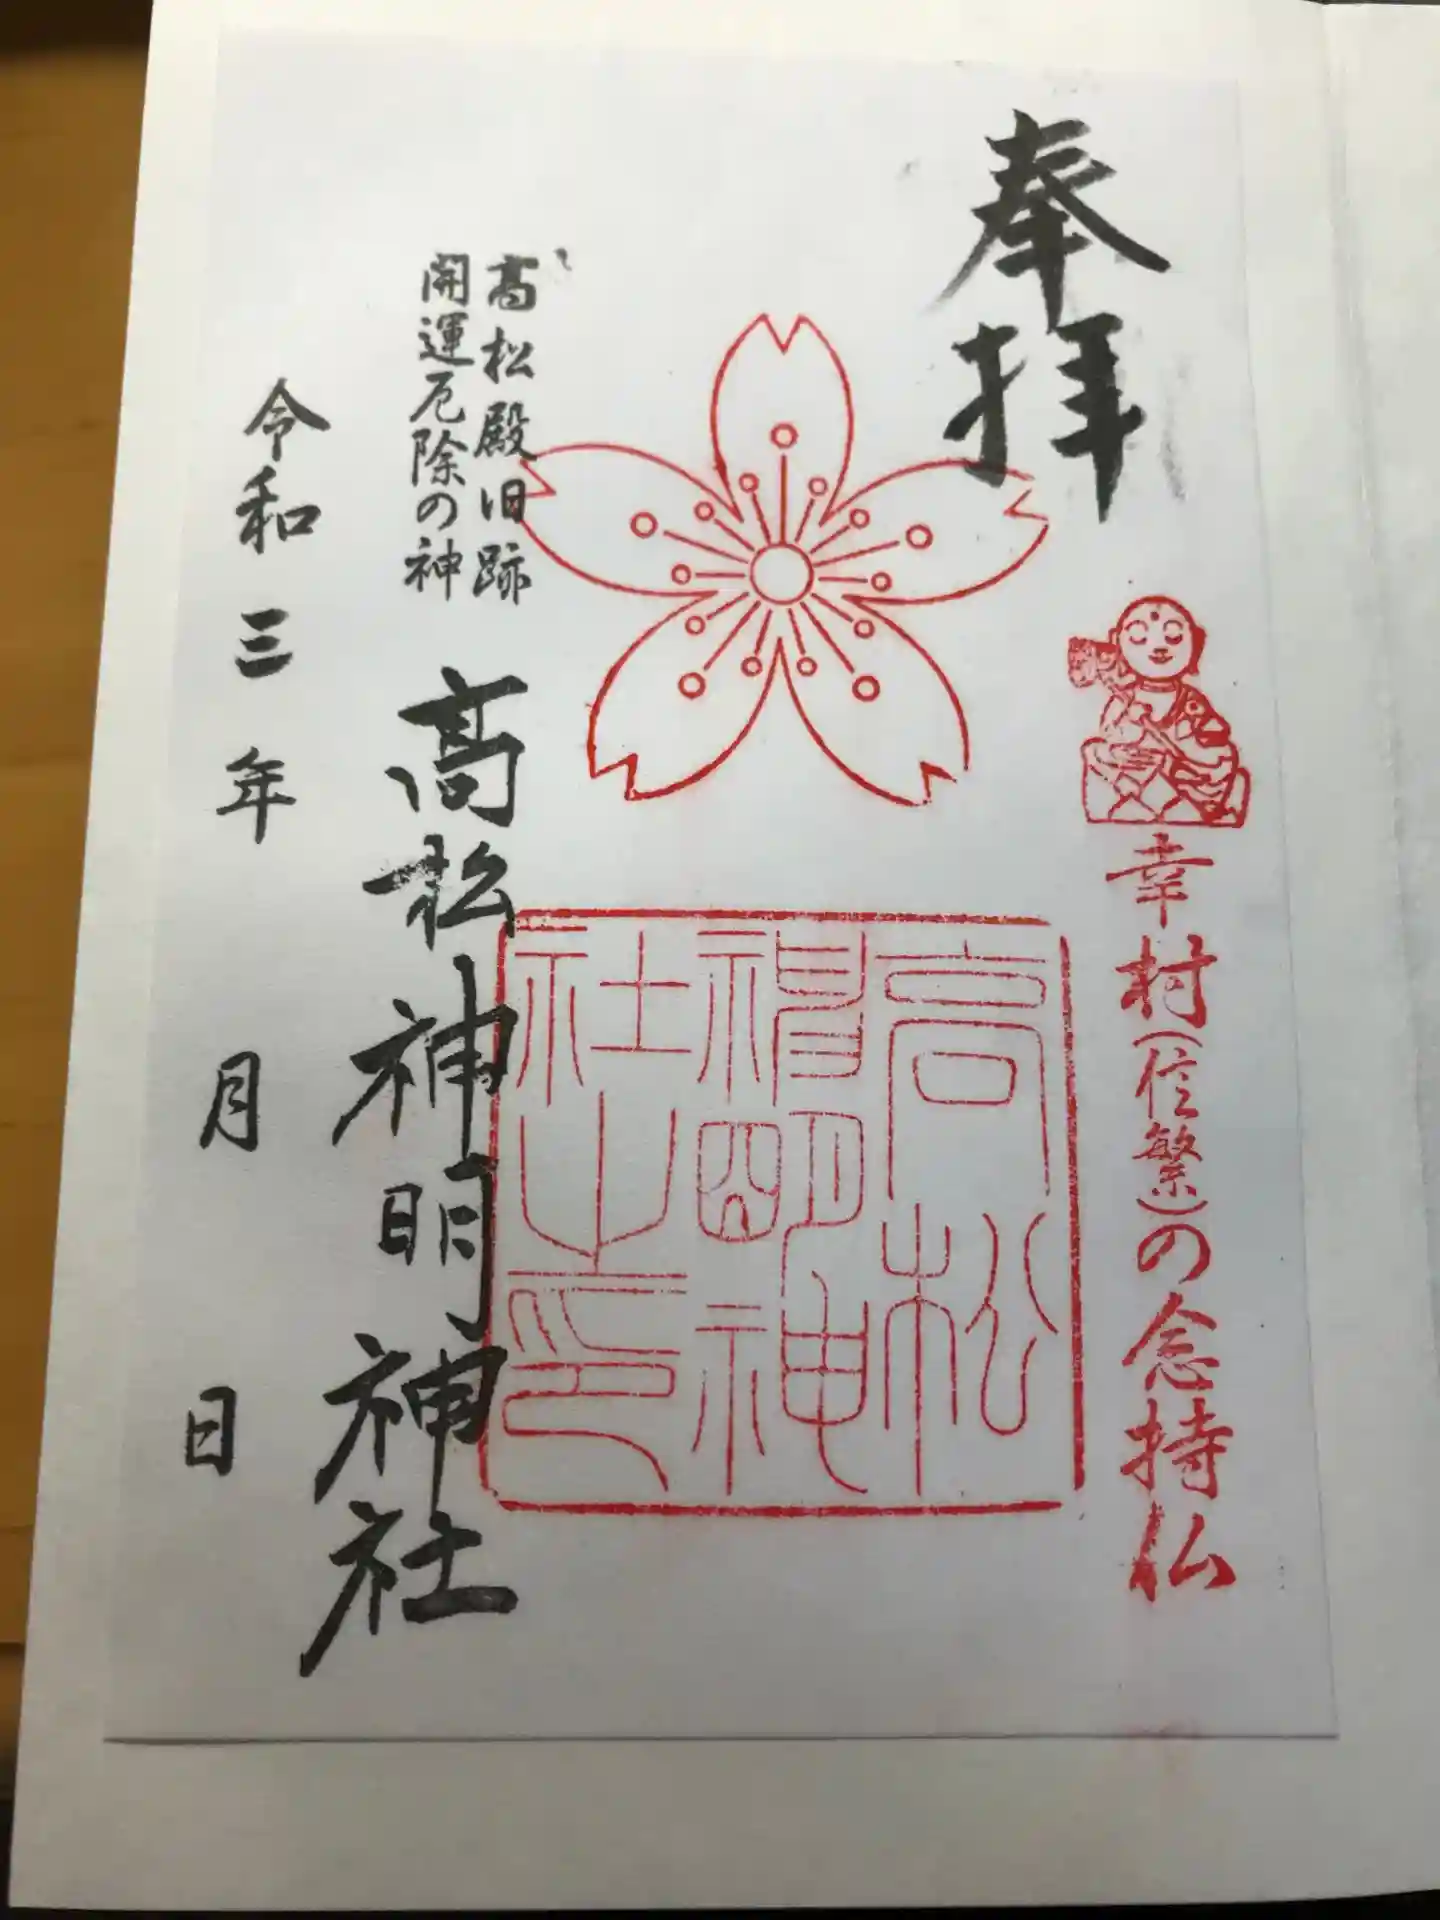 奉拝
幸村(信繁)の念持仏
高松
神明神
社之印
高松殿旧跡
開運厄除の神
高松神明神社
令和三年 月 日